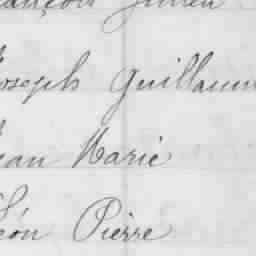 François Julien
Joseph Guillaume
Jean Marie
Léon Pierre